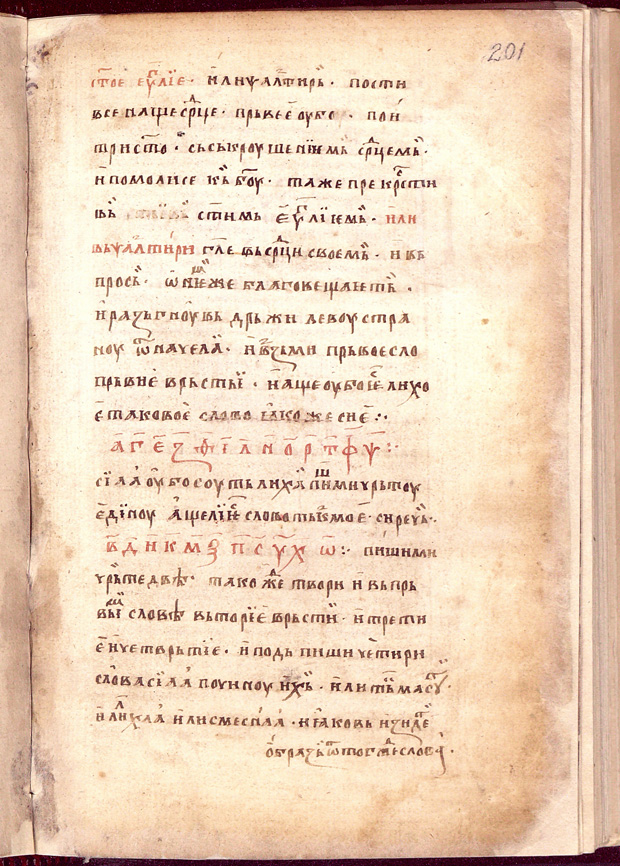 201
ст҃ое еѵ҃лїе · или ѱалтирь · пости
все наше ср҃це · прьвее оубо пои
тристо · сьськроушенїемь ср҃цемь ·
и помолисе кь б҃оу · таже прекр҃сти
вь стимь еѵ҃лїемь · или
вьѱалтири гл҃е вьср҃ци своемь · и вь
прось · ѡ нѥмже благовещаеть ·
и разьгноувь дрьжи левоу стра
ноу ѿ начела · и вьзьми прьвое сло
прьвие врьстьї · и аще оубо б҃е лихо
е таковое слово ꙗкоже сие ·:·
а҃ г҃ е҃ з҃ ѳ҃ і҃ л҃ н҃ о҃ р҃ т҃ ф҃ ѱ҃ ·:·
сїа оубо соуть лиха пиши чрьтоу
едїноу аще ли слово тькмо е · сиречь ·
в҃ д҃ и҃ к҃ м҃ ѯ҃ п҃ с҃ у҃ х҃ ѡ҃ ·:· пиши ми
чрьте две · такоже твори и вь прь
вьї слове вьторїе врьсти · и трети
е и четврьтїе · и подьпиши четири
словасїа по чиноу ихь · или
и лиха или смесила · и ꙗковь изиде
образь ѿтог